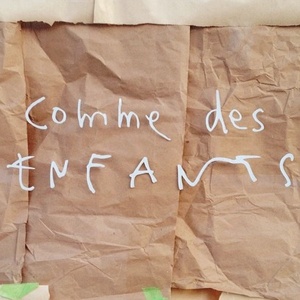 comme des
ENFANTS